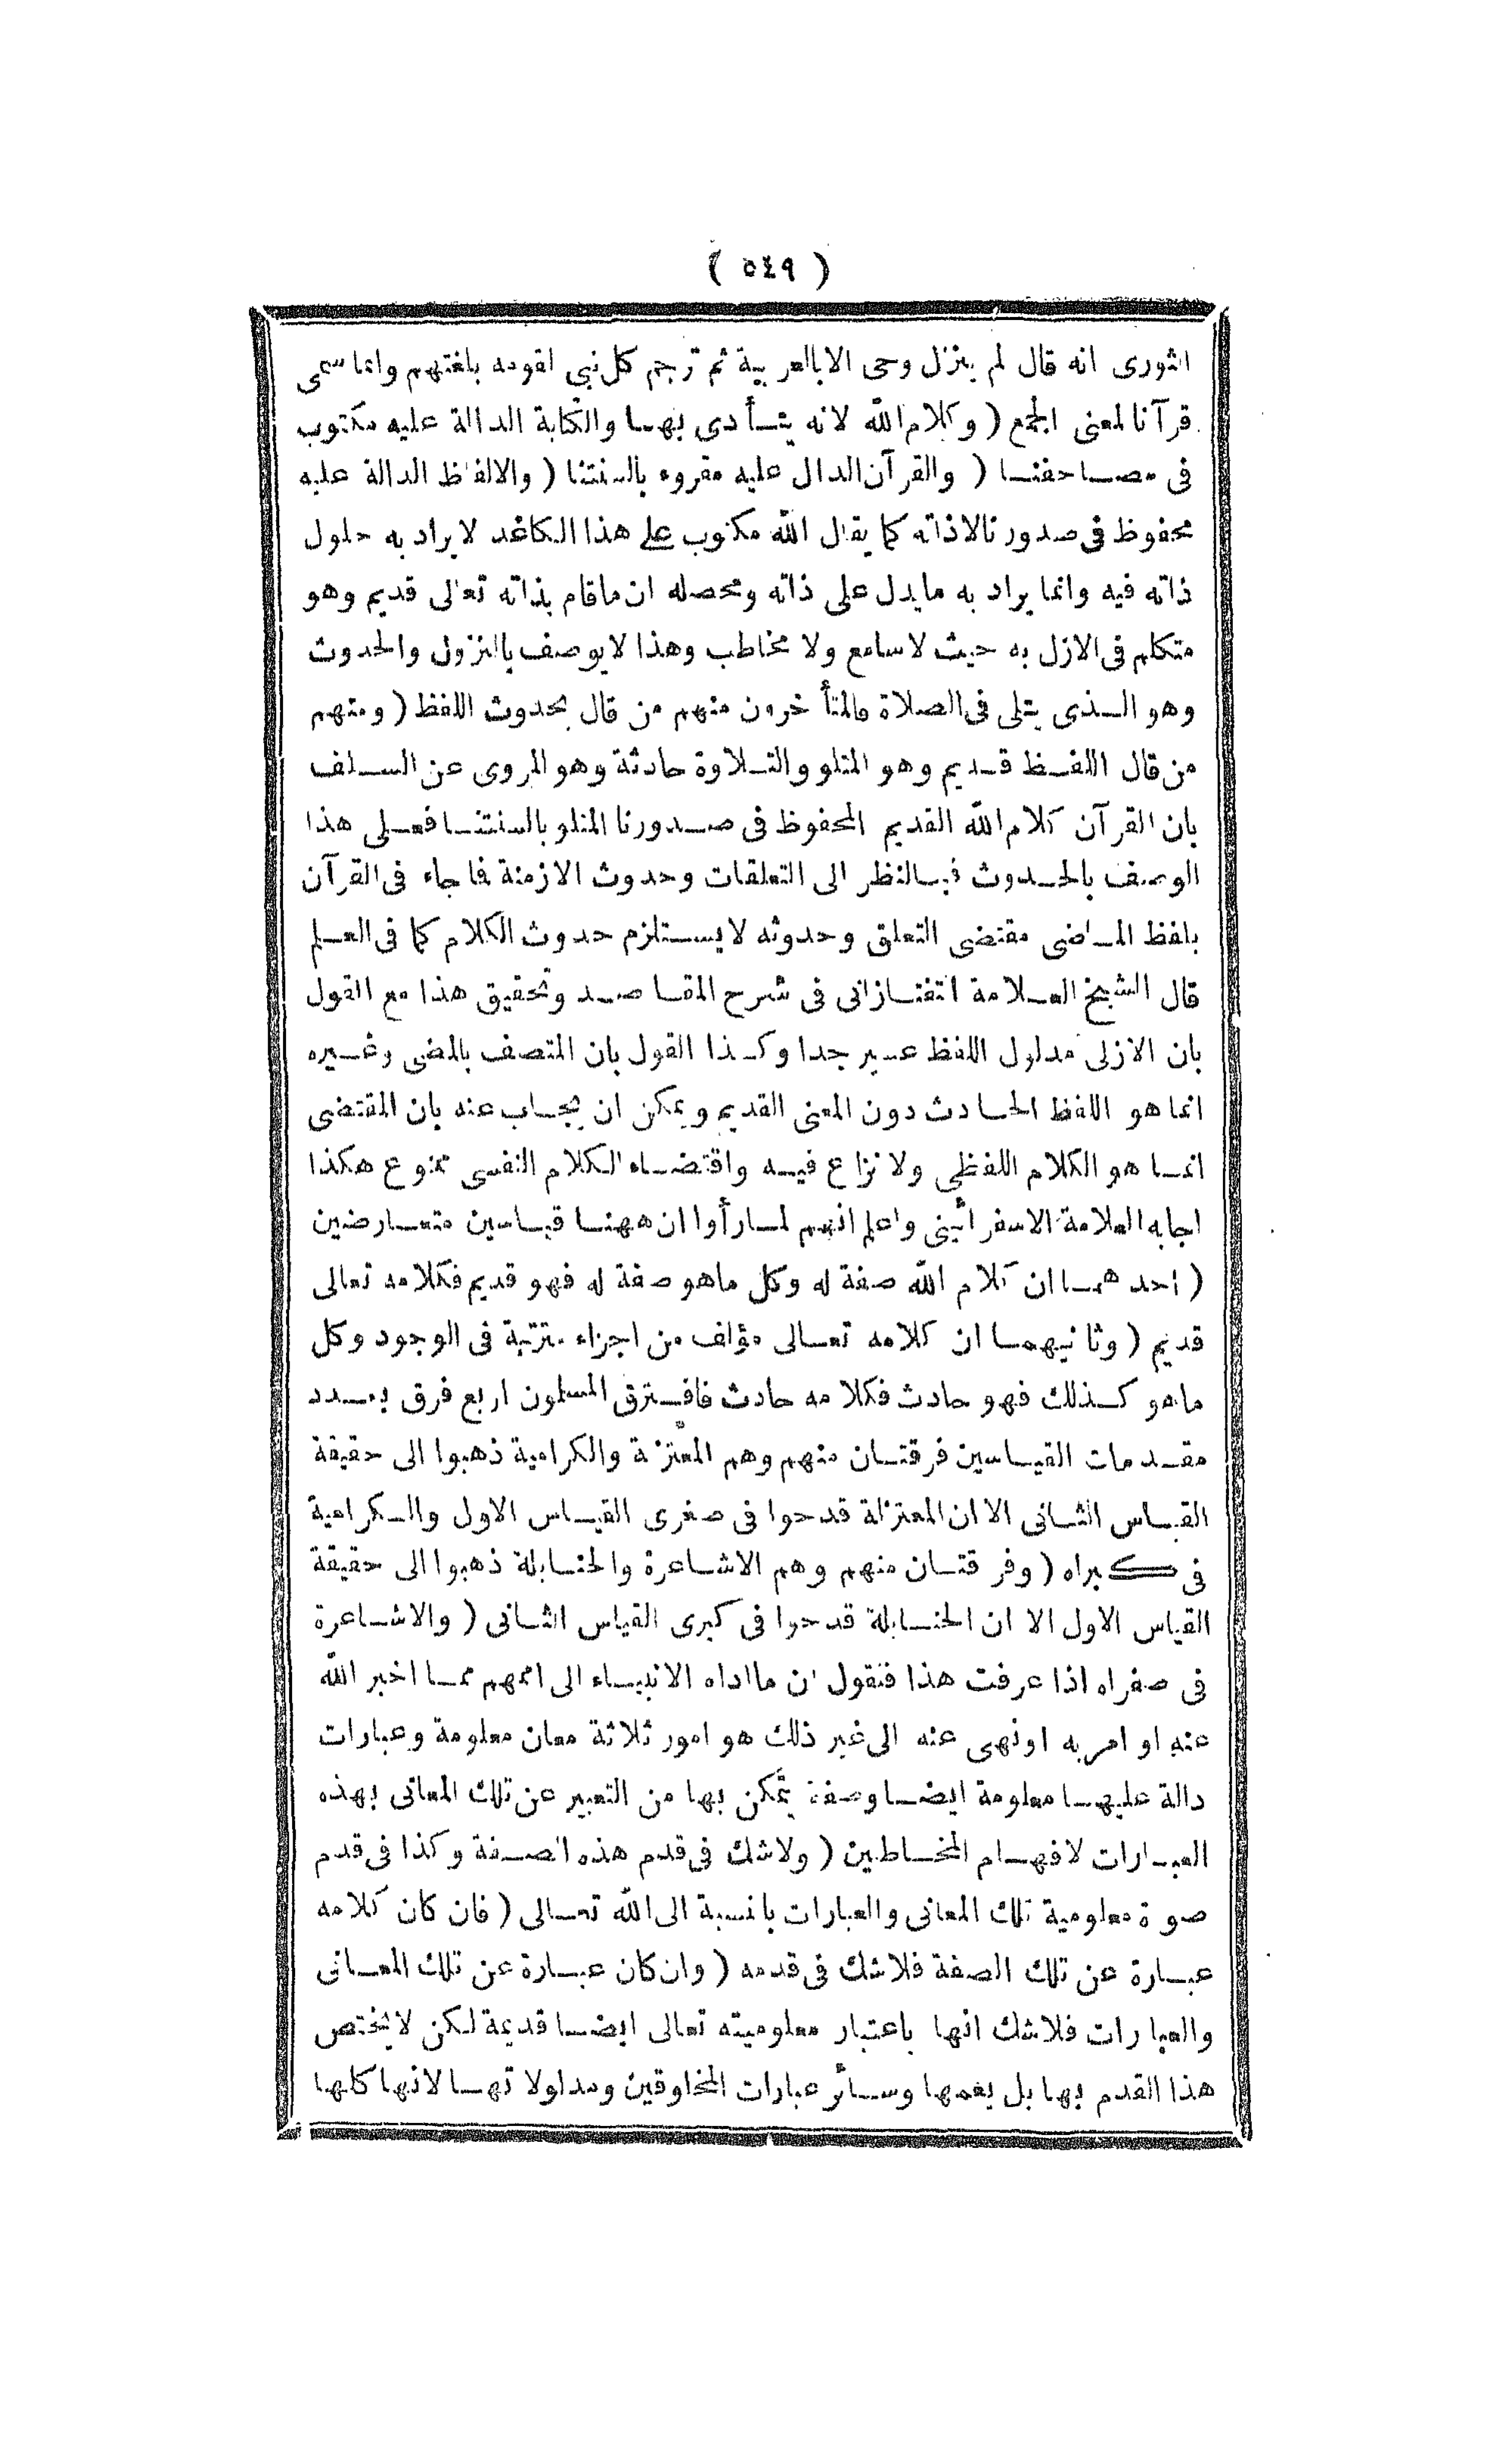 ( ٥٤٩ )
الثورى انه قال لم ينزل وحى الا بالعربية ثم ترجم كل نبى لقومه بلغتهم وانما سمى
قرآنا لمعنى الجمع ( وكلام الله لانه يتأدى بهما والكتابة الدالة عليه مكتوب
فى مصاحفنا ( والقرآن الدال عليه مقروء بالسنتنا ( والالفاظ الدالة عليه
محفوظ فى صدورنا لا ذاته كما يقال الله مكتوب على هذا الكاغد لا يراد به حلول
ذاته فيه وانما يراد به ما يدل على ذاته ومحصله ان ما قام بذاته تعالى قديم وهو
متكلم فى الازل به حيث لا سامع ولا مخاطب وهذا لا يوصف بالنزول والحدوث
وهو الذى يتلى فى الصلاة فالمتأخرون منهم من قال بحدوث اللفظ ( ومنهم
من قال اللفظ قديم وهو المتلو والتلاوة حادثة وهو المروى عن السلف
بان القرآن كلام الله القديم المحفوظ فى صدورنا المتلو بالسنتنا فعلى هذا
الوصف بالحدوث فبالنظر الى التعلقات وحدوث الازمنة فما جاء فى القرآن
بلفظ الماضى مقتضى التعلق وحدوثه لا يستلزم حدوث الكلام كما فى العلم
قال الشيخ العلامة التفتازانى فى شرح المقاصد وتحقيق هذا مع القول
بان الازلى مدلول اللفظ عسير جدا وكذا القول بان المتصف بالمضى وغيره
انما هو اللفظ الحادث دون المعنى القديم ويمكن ان يجاب عنه بان المقتضى
انما هو الكلام اللفظى ولا نزاع فيه واقتضاء الكلام النفسى ممنوع هكذا
اجابه العلامة الاسفرائينى واعلم انهم لما رأوا ان ههنا قياسين متعارضين
( احدهما ان كلام الله صفة له وكل ما هو صفة له فهو قديم فكلامه تعالى
قديم ( وثانيهما ان كلامه تعالى مؤلف من اجزاء مترتبة فى الوجود وكل
ما هو كذلك فهو حادث فكلامه حادث فافترق المسلمون اربع فرق بعدد
مقدمات القياسين فرقتان منهم وهم المعتزلة والكرامية ذهبوا الى حقيقة
القياس الثانى الا ان المعتزلة قدحوا فى صغرى القياس الاول والكرامية
فى كبراه ( وفرقتان منهم وهم الاشاعرة والحنابلة ذهبوا الى حقيقة
القياس الاول الا ان الحنابلة قدحوا فى كبرى القياس الثانى ( والاشاعرة
فى صغراه اذا عرفت هذا فنقول ان ما اداه الانبياء الى اممهم مما اخبر الله
عنه او امر به او نهى عنه الى غير ذلك هو امور ثلاثة معان معلومة وعبارات
دالة عليها معلومة ايضا وصفة يتمكن بها من التعبير عن تلك المعانى بهذه
العبارات لافهام المخاطبين ( ولا شك فى قدم هذه الصفة وكذا فى قدم
صورة معلومية تلك المعانى والعبارات بالنسبة الى الله تعالى ( فان كان كلامه
عبارة عن تلك الصفة فلا شك فى قدمه ( وان كان عبارة عن تلك المعانى
والعبارات فلا شك انها باعتبار معلوميته تعالى ايضا قديمة لكن لا يختص
هذا القدم بها بل يعمها وسائر عبارات المخلوقين ومدلولاتها لانها كلها